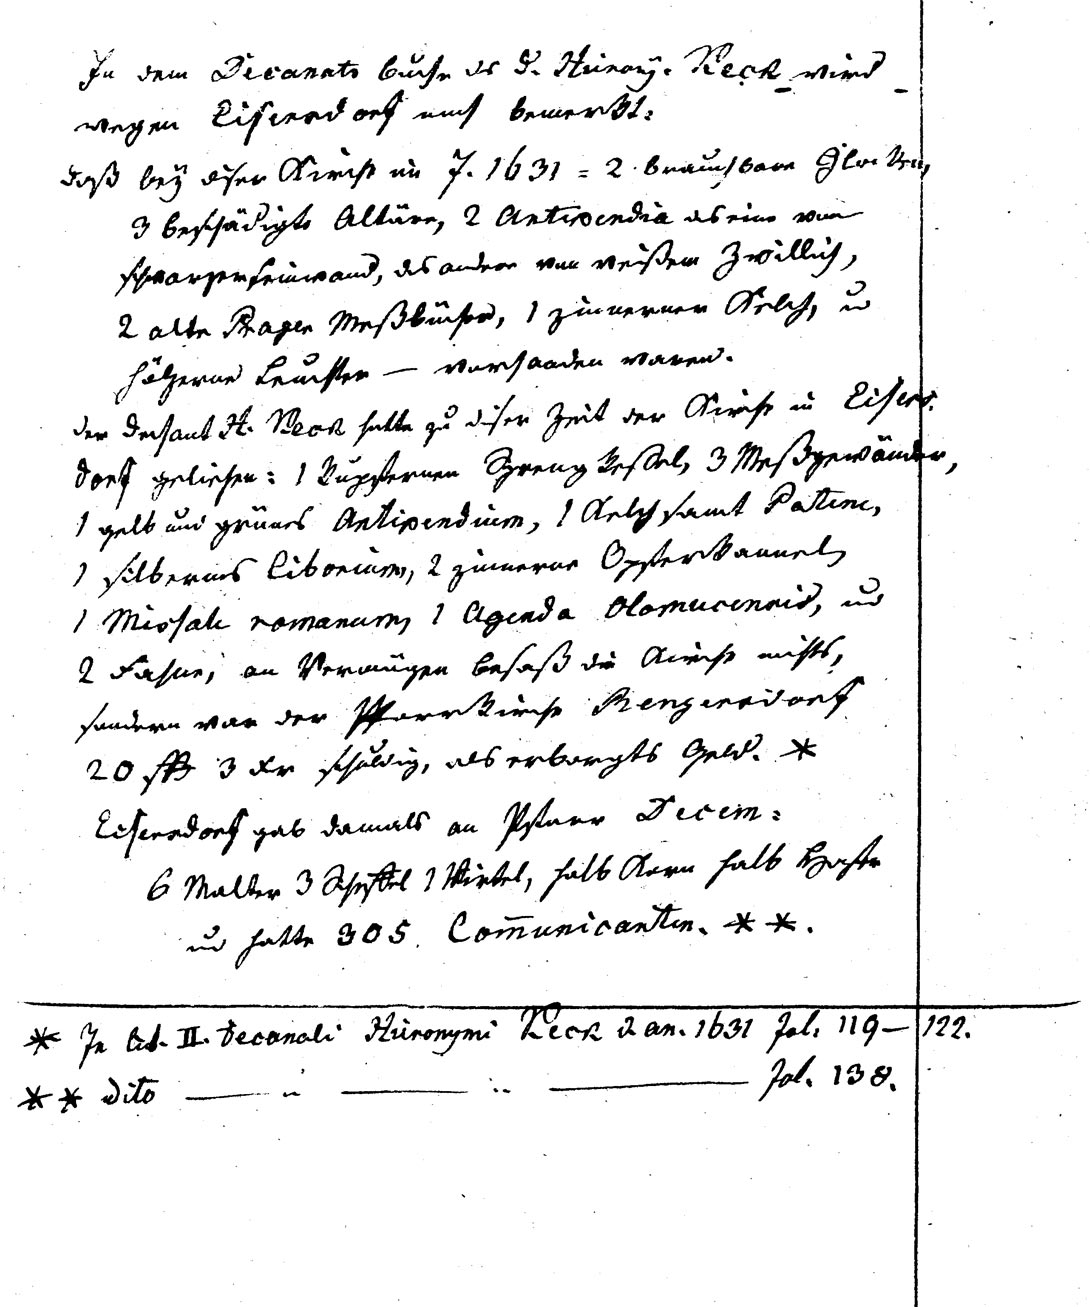 In dem Decanats buche des D. Hierony. Keck wird
wegen Eisersdorf auch bemerkt:
daß bey diser Kirche im J. 1631 = 2 brauchbare Glocken,
3 beschädigte Altäre, 2 Antipendia das eine von
schwarzer Leinwand, das andere von weißem Zwillich,
2 alte Prager Meßbücher, 1 zinnerner Kelch, u
hölzerne Leuchter — vorhanden waren.
der Dechant H. Keck hatte zu diser Zeit der Kirche in Eisers-
dorf geliehen: 1 kupfernen Sprengkessel, 3 Meßgewänder,
1 gelb und grünes Antipendium, 1 Kelch samt Patene,
1 silbernes Ciborium, 2 zinnerne Opferkannel,
1 Missale romanum, 1 Agenda Olomucensis, und
2 Fahne; an Vermögen besaß die Kirche nichts,
sondern war der Pfarrkirche Rengersdorf
20 ßß 3 Kr schuldig, als erborgts Geld. *
Eisersdorf gab damals an Pfarr Decem:
6 Malter 3 Scheffel 1 Virtel, halb Korn halb Hafer
und hatte 305 Communicanten. **.
* In Lib. II. Decanali Hieronymi Keck d an. 1631 Fol. 119 — 122.
** dito — " — " — Fol. 138.